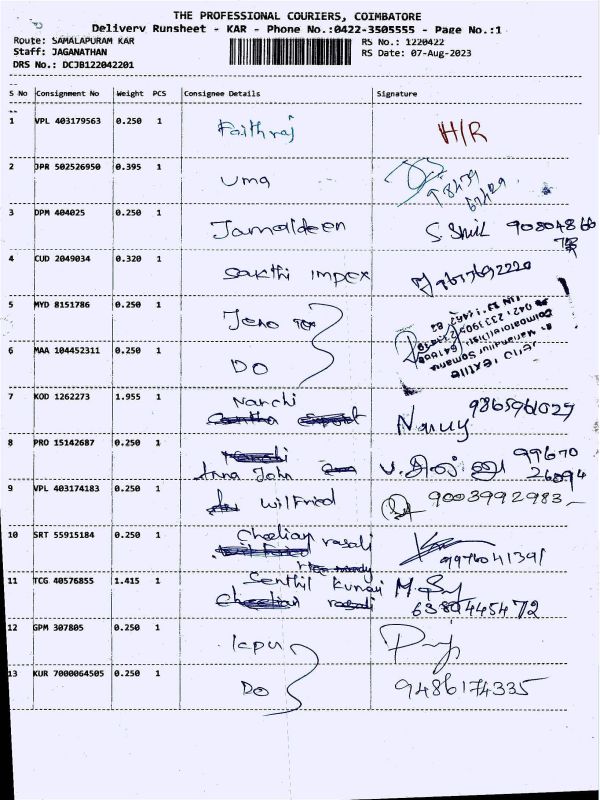 THE PROFESSIONAL COURIERS, COIMBATORE
Delivery Runsheet - KAR - Phone No.:0422-3505555 - Page No.:1
Route: SAMALAPURAM KAR RS No.: 1220422
Staff: JAGANATHAN RS Date: 07-Aug-2023
DRS No.: DCJB122042201
S No Consignment No Weight PCS Consignee Details Signature
1 VPL 403179563 0.250 1 Faithraj H/R
2 JPR 502526950 0.395 1 Uma
3 DPM 404025 0.250 1 Jamaldeen
4 CUD 2049034 0.320 1 Sakthi impex
5 MYD 8151786 0.250 1 Jeno
6 MAA 104452311 0.250 1 DO
7 KOD 1262273 1.955 1 Nanchi 9865961027
8 PRO 15142687 0.250 1 Anna John 99670
26094
9 VPL 403174183 0.250 1 Wilfried 9003992983
10 SRT 55915184 0.250 1 Cheelian rasali 9976041391
11 TCG 40576855 1.415 1 Senthil Kumar
6389445472
12 GPM 307805 0.250 1
13 KUR 7000064505 0.250 1 DO 9486174335